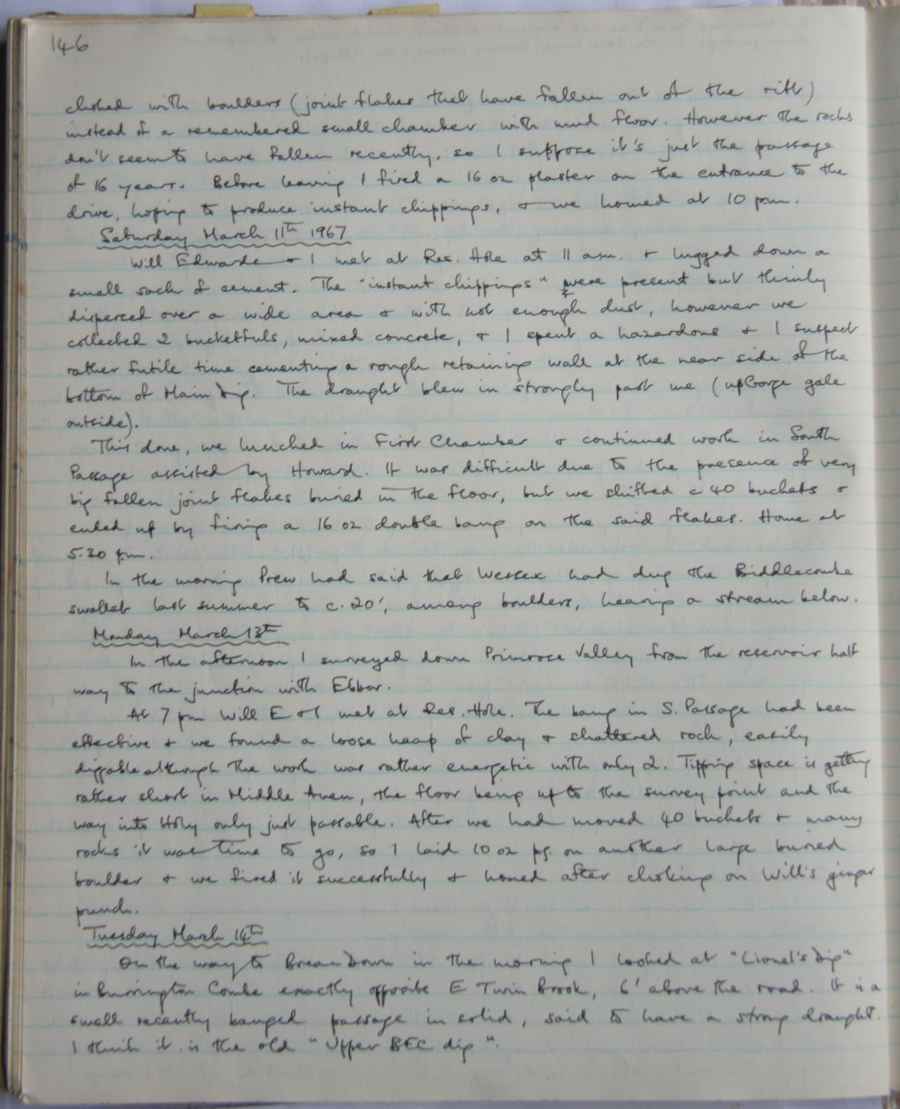 146
choked with boulders (joint flakes that have fallen out of the rift)
instead of a remembered small chamber with mud floor. However the rocks
don't seem to have fallen recently, so I suppose it's just the passage
of 16 years. Before leaving I fired a 16 oz plaster on the entrance to the
drive, hoping to produce instant chippings, & we homed at 10 pm.
Saturday March 11th 1967
Will Edwards & I met at Res. Hole at 11 am. & lugged down a
small sack of cement. The "instant chippings" were present but thinly
dispersed over a wide area & with not enough dust, however we
collected 2 bucketfuls, mixed concrete, & I spent a hazardous & I suspect
rather futile time cementing a rough retaining wall at the near side of the
bottom of Main Dig. The draught blew in strongly past me (upGorge gale
outside).
This done, we lunched in First Chamber & continued work in South
Passage assisted by Howard. It was difficult due to the presence of very
big fallen joint flakes buried in the floor, but we shifted c 40 buckets &
ended up by firing a 16 oz double bang on the said flakes. Home at
5.20 pm.
In the morning Prew had said that Wessex had dug the Biddlecombe
swallet last summer to c. 20', among boulders, hearing a stream below.
Monday March 13th
In the afternoon I surveyed down Primrose Valley from the reservoir half
way to the junction with Ebbor.
At 7 pm Will E & I met at Res. Hole. The bang in S. Passage had been
effective & we found a loose heap of clay & shattered rock, easily
diggable although the work was rather energetic with only 2. Tipping space is getting
rather short in Middle Aven, the floor being up to the survey point and the
way into Holy only just passable. After we had moved 40 buckets & many
rocks it was time to go, so I laid 10 oz pg on another large buried
boulder & we fired it successfully & homed after choking on Will's ginger
punch.
Tuesday March 14th
On the way to Brean Down in the morning I looked at "Lionel's Dig"
in Burrington Combe exactly opposite E Twin Brook, 6' above the road. It is a
small recently banged passage in solid, said to have a strong draught.
I think it is the old "Upper BEC dig".